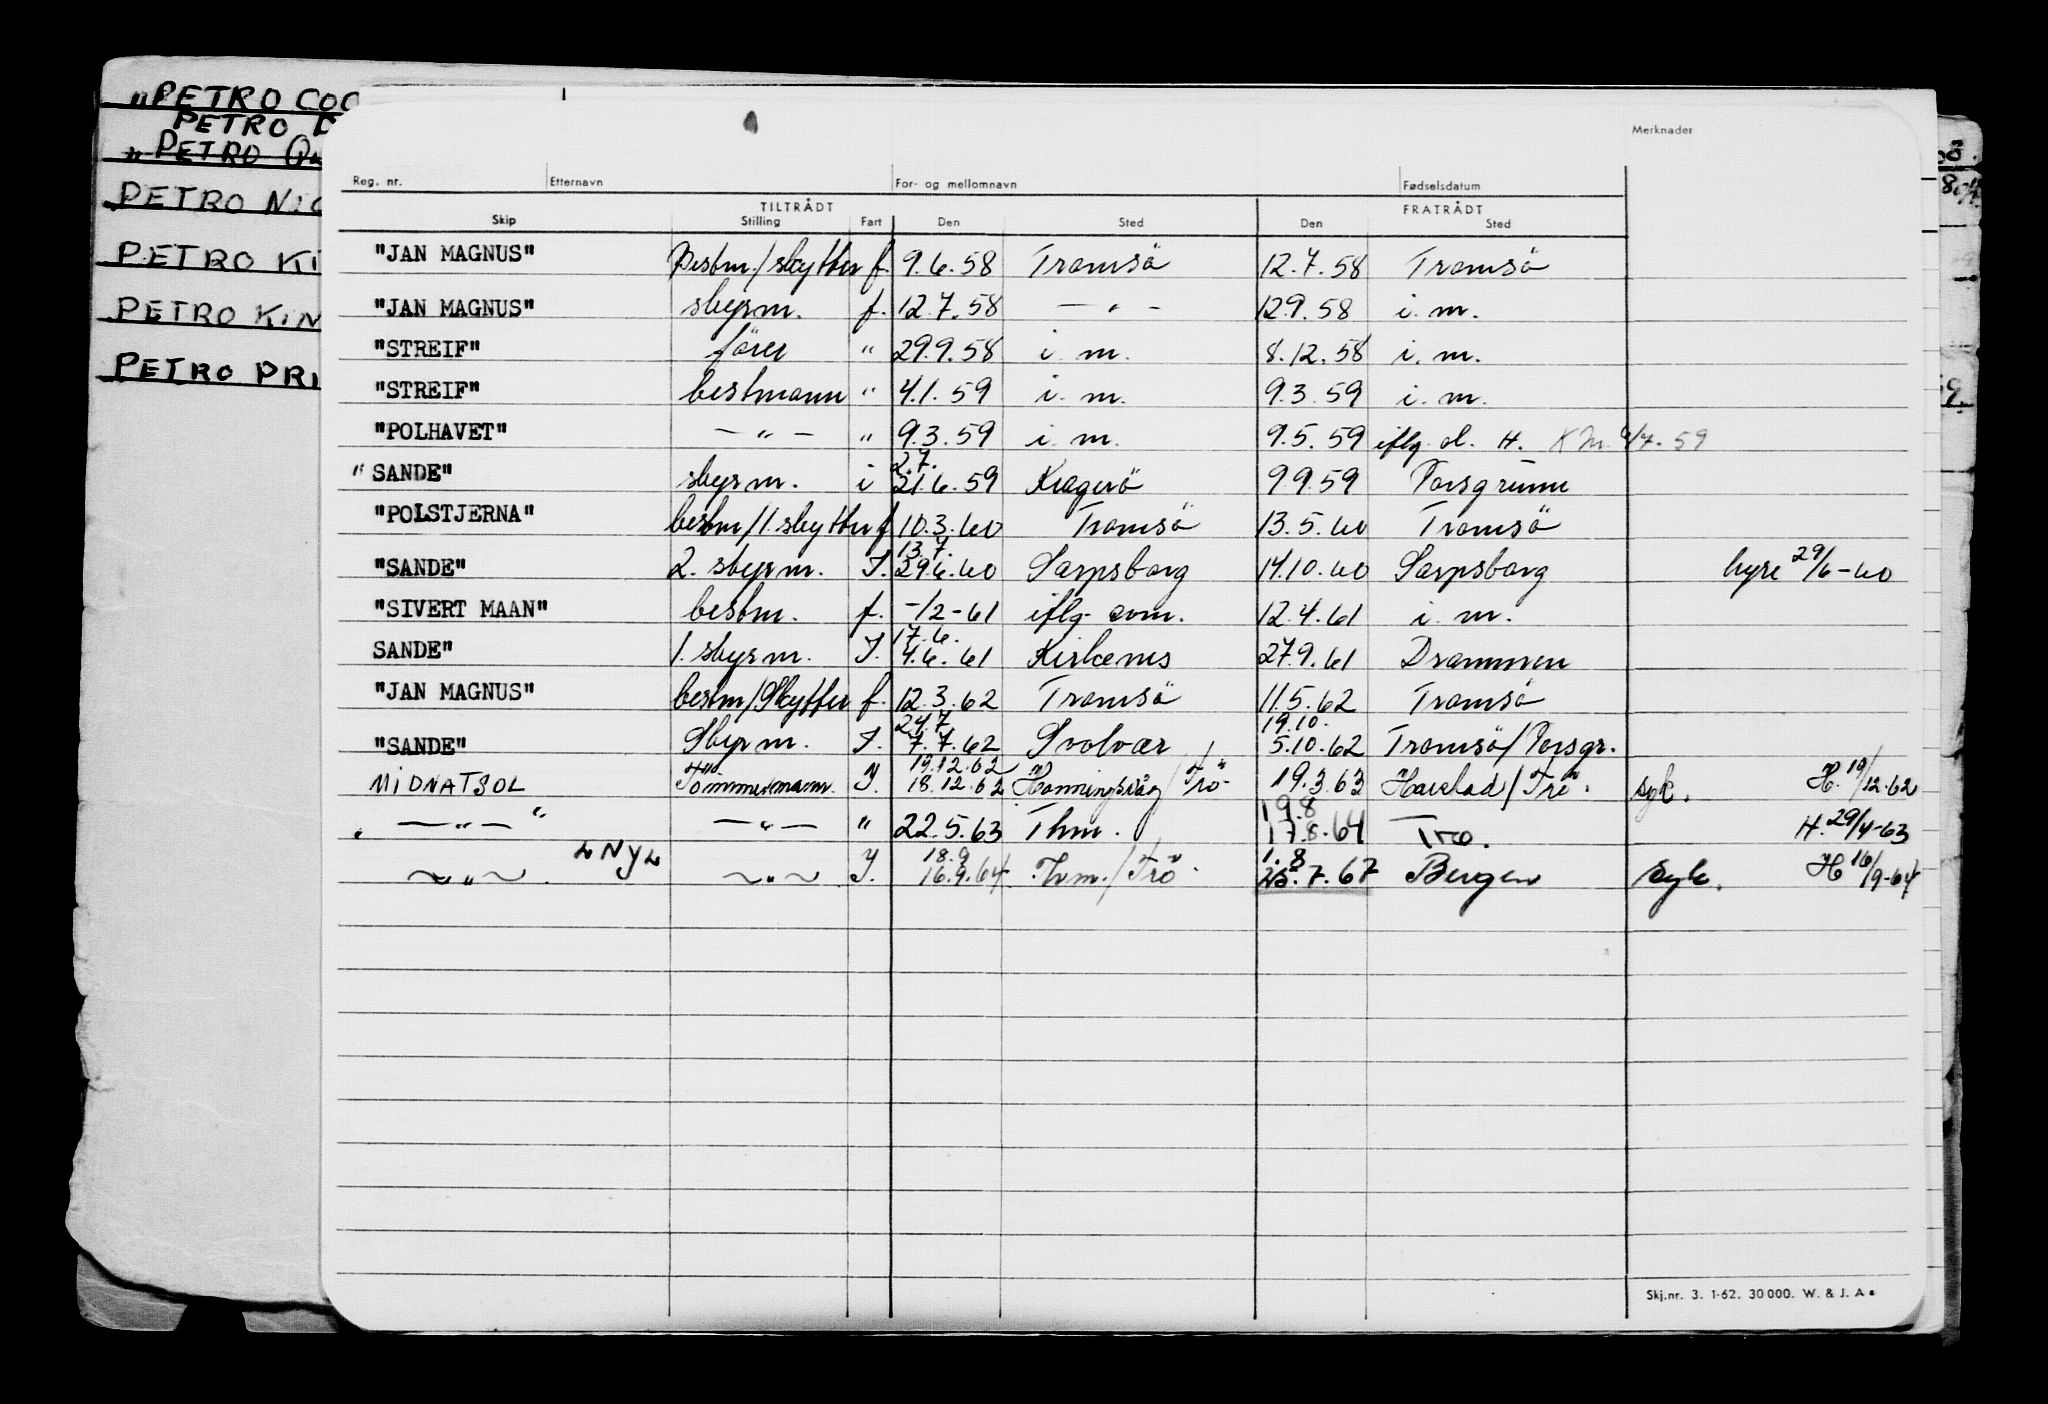 "PETRO COO
PETRO D
"PETRO
PETRO NIC
PETRO KI
PETRO KIN
PETRO PRI
Merknader
Reg. nr. Etternavn For- og mellomnavn Fødselsdatum
TILTRÅDT FRATRÅDT
Skip Stilling Fart Den Sted Den Sted
"JAN MAGNUS" Bestm./skytter f. 9.6.58 Tromsö 12.7.58 Tromsö
"JAN MAGNUS" styrm. f. 12.7.58 — " — 12.9.58 i. m.
"STREIF" förer " 29.9.58 i. m. 8.12.58 i. m.
"STREIF" bestmann " 4.1.59 i. m. 9.3.59 i. m.
"POLHAVET" — " — " 9.3.59 i. m. 9.5.59 iflg. d. H. KM. 6/7.59
2.7.
"SANDE" styrm. i 21.6.59 Kragerö 9.9.59 Porsgrunn
"POLSTJERNA" bestm/1.skytter f 10.3.60 Tromsö 13.5.60 Tromsö
13.7.
"SANDE" 2. styrm. I. 29.6.60 Sarpsborg 14.10.60 Sarpsborg hyre 29/6-60
"SIVERT MAAN" bestm. f. -/2-61 iflg. som. 12.4.61 i. m.
17.6.
SANDE" 1. styrm. I. 4.6.61 Kirkenes 27.9.61 Drammen
"JAN MAGNUS" bestm/Skytter f. 12.3.62 Tromsö 11.5.62 Tromsö
24.7 19.10.
"SANDE" Styrm. I. 7.7.62 Svolvær 5.10.62 Tromsö/Porsgr.
19.12.62
MIDNATSOL Tömmermann. I. 18.12.62 Honningsvåg/Trö- 19.3.63 Harstad/Trö. syk. H. 19/12.62
19.8
" — " — " — " — " 22.5.63 Thm. 17.8.64 Tro. H. 29/4-63
"NY" 18.9 1.8
~ " ~ ~ " ~ I. 16.9.64 Thm./Trö 25.7.67 Bergen syk. H 16/9-64
Skj.nr. 3. 1-62. 30 000. W. & J. A •